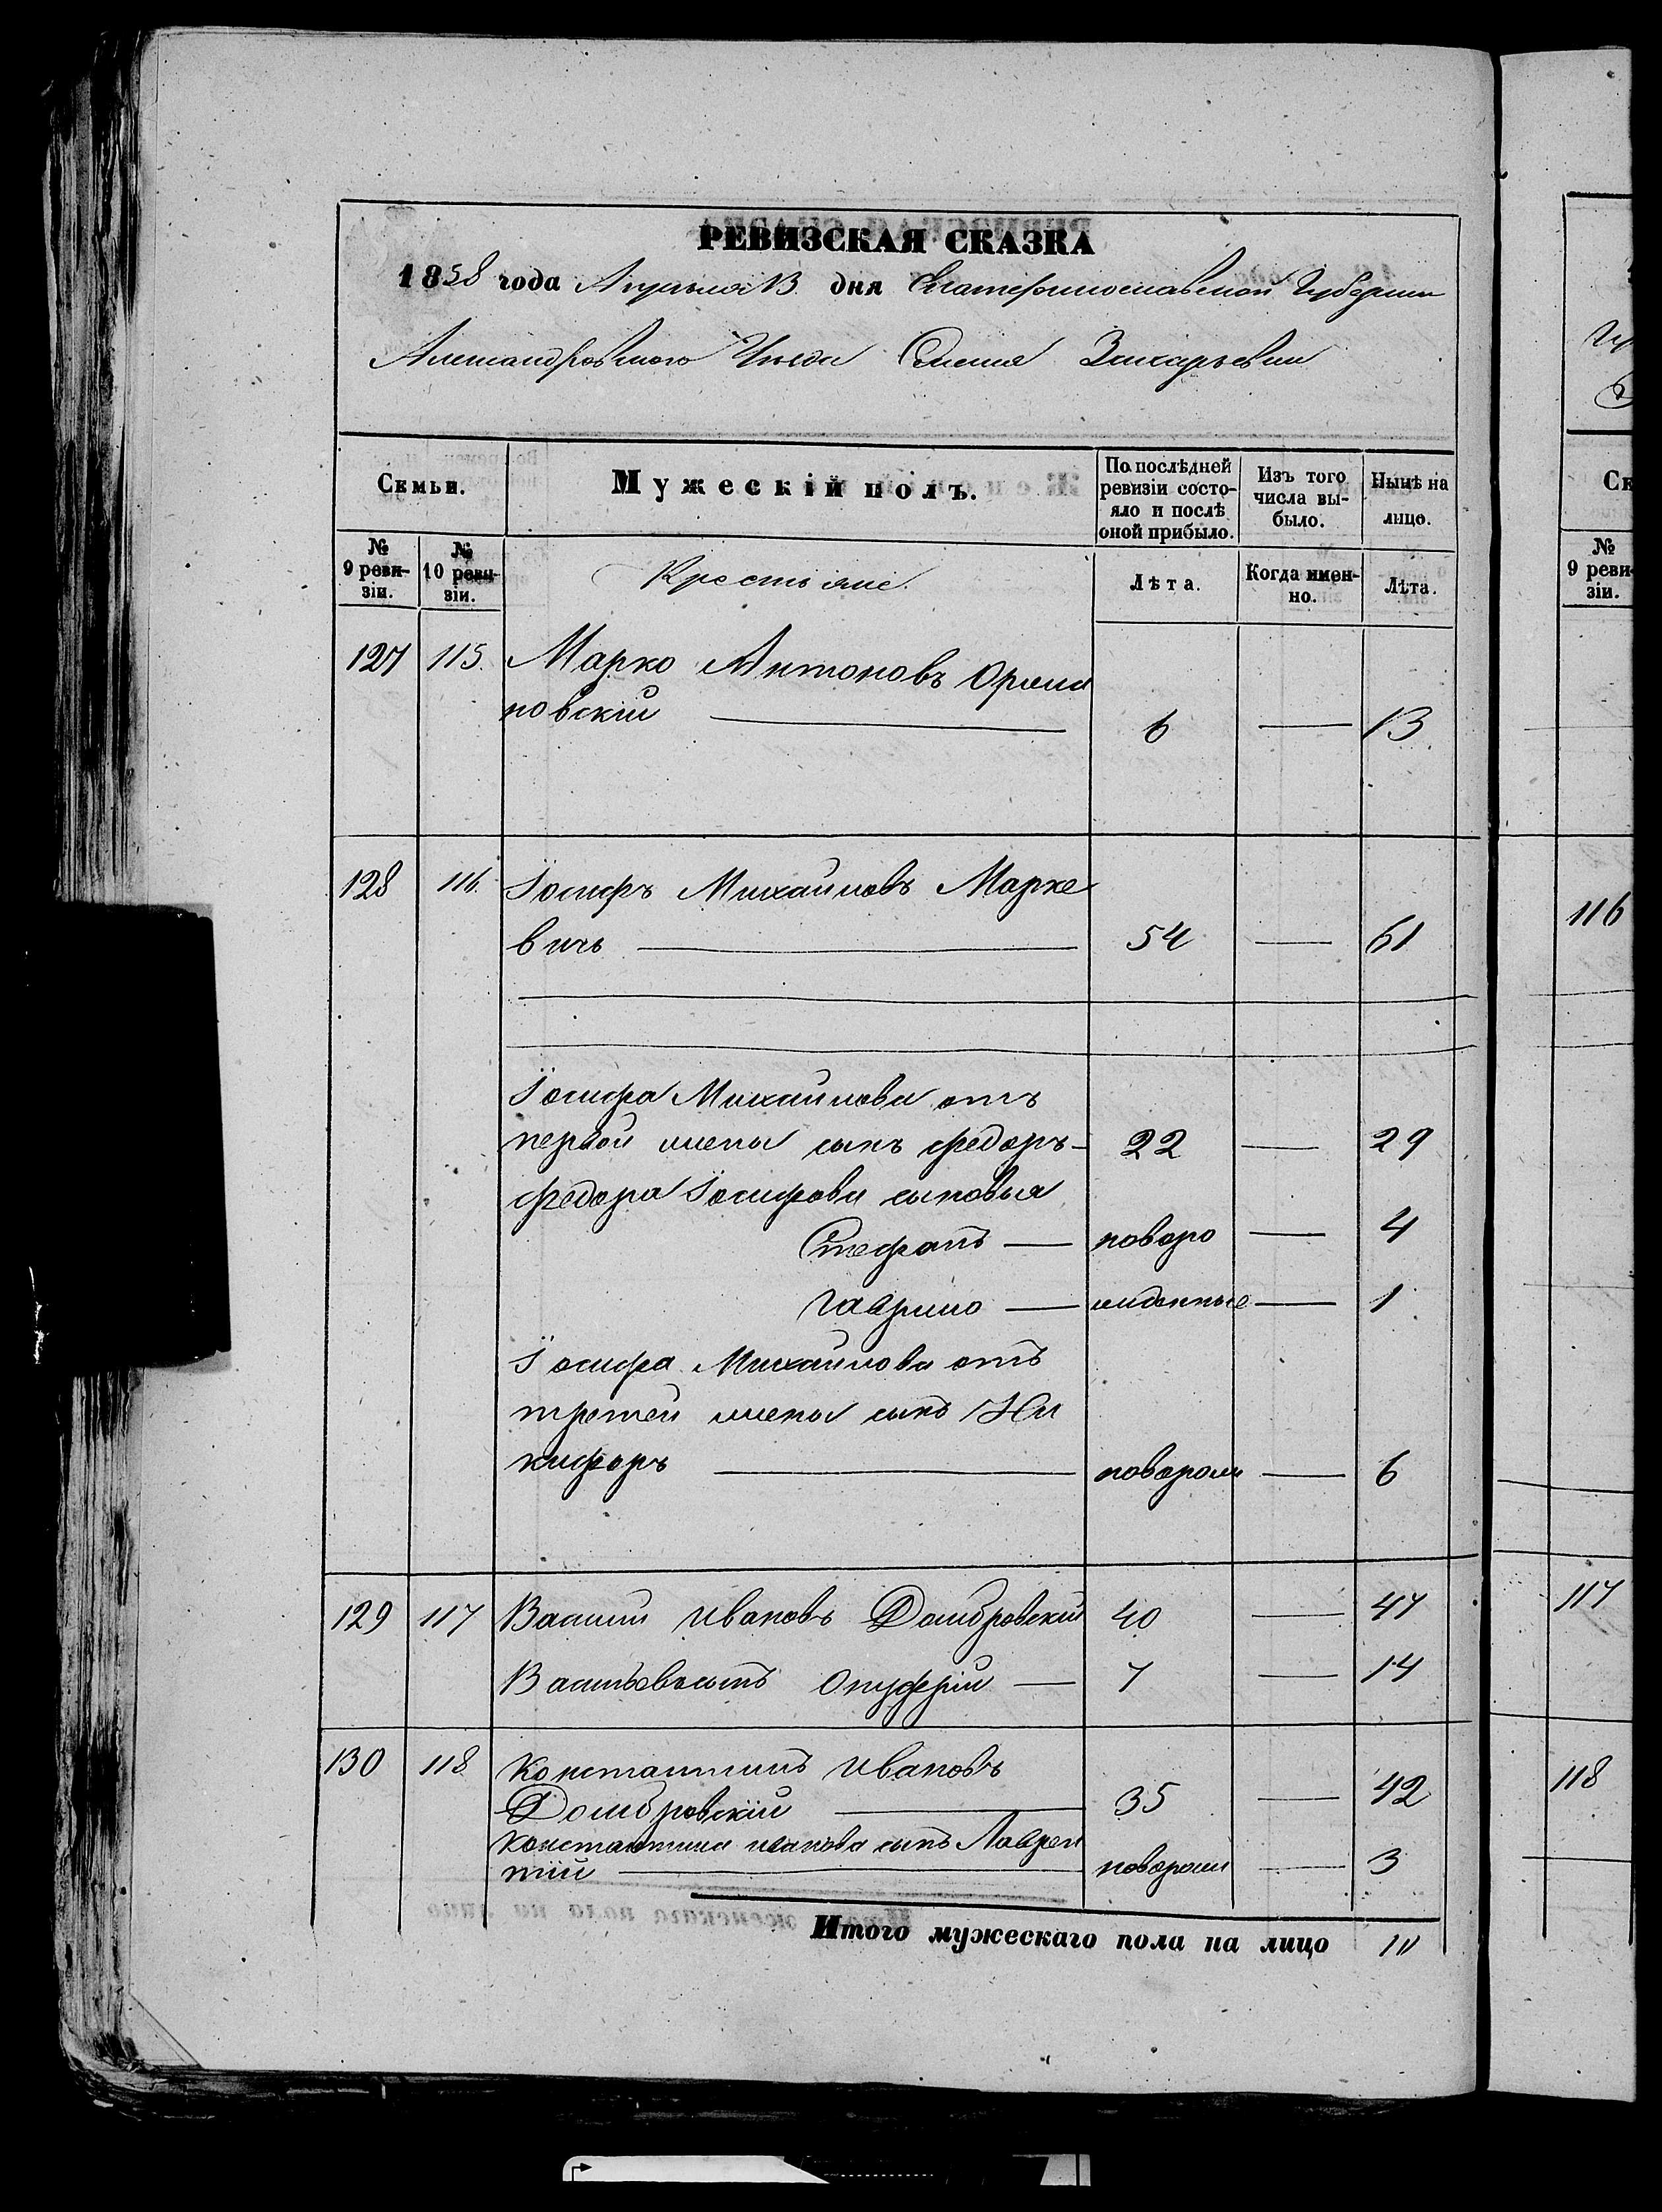 РЕВИЗСКАЯ СКАЗКА
1858 года Апреля 13 дня Екатеринославской Губернии
Александровского Уезда Селенія Захарьевки
Семьи.
Мужескій полъ.
По послѣдней ревизіи состояло и послѣ оной прибыло.
Изъ того числа выбыло.
Нынѣ на лицо.
№ 9 ревизіи.
№ 10 ревизіи.
Крестьяне
Лѣта.
Когда именно.
Лѣта.
127 115. Марко Антоновъ
новскій — 6 — 13
128 116. Іосифъ Михайловъ Марке
вичъ — 54 — 61
Іосифа Михайлова отъ
первой жены сынъ Федоръ - 22 — 29
Федора Іосифова сыновья
Стефанъ — новоро — 4
Гаврило — жденные — 1
Іосифа Михайлова отъ
третей жены сынъ Ни
кифоръ — новорож — 6
129 117 Василий Ивановъ Домбровский 40 — 47
Васильевъ сынъ Онуфрій — 7 — 14
130 118 Константинъ Ивановъ
Домбровскій — 35 — 42
Константина Иванова сынъ Лаврен
тій — новорож — 3
Итого мужескаго пола на лицо 10
№ 9 ревизіи.
116
117
118